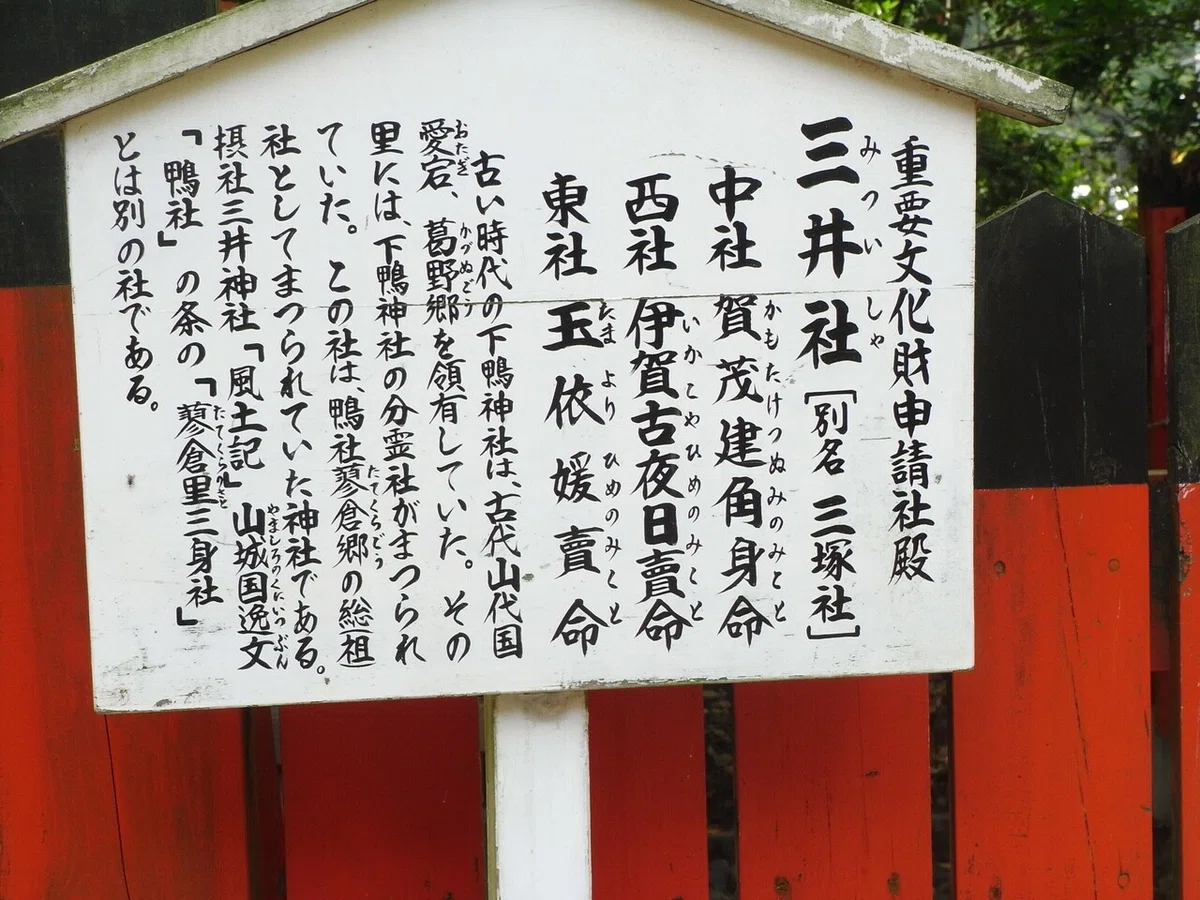 重要文化財申請社殿
三井社［別名 三塚社］
みついしゃ
中社 賀茂建角身命
かもたけつぬみのみこと
西社 伊賀古夜日賣命
いかこやひめのみこと
東社 玉依媛賣命
たまよりひめのみこと
古い時代の下鴨神社は、古代山代国
愛宕、葛野郷を領有していた。その
おたぎ かづぬごう
里には、下鴨神社の分霊社がまつられ
ていた。この社は、鴨社蓼倉郷の総(祖)
たてくらごう
社としてまつられていた神社である。
摂社三井神社「風土記」山城国逸文
やましろのくにいつぶん
「鴨社」の条の「蓼倉里三身社」
たてくらのさと
とは別の社である。